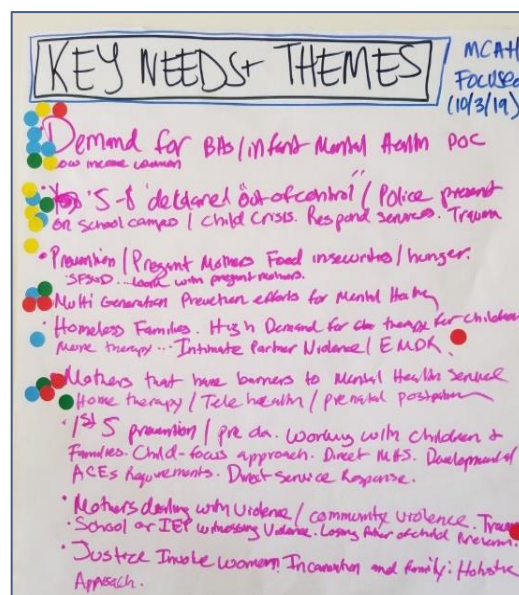 KEY NEEDS + THEMES
MCAH
Focused
(10/3/19)
Demand for BAs/infant Mental Health POC
Low income women
5-8 "declared out of control" / Police present
on school campus / Child Crisis. Respond services. Trauma
• Prevention / Pregant Mothers Food insecurities/hunger.
SFSUD... work with pregant mothers.
• Multi Generation Prevention efforts for Mental
• Homeless Families. High Demand for therapy for children
More therapy... Intimate Partner Violence / EMDR.
• Mothers that have barriers to Mental Health Service
Home therapy / Tele health / prenatal postpartum
• 1st 5 prevention / pre da. Working with children &
Families. Child-focus approach. Direct MHS. Developmental
ACEs Requirements. Direct Service Response.
• Mothers dealing with violence / community violence. Trauma
• School or IEP witnessing Violence. Losing of child
• Justice Involve women. Incarceration and Family: Holistic
Approach.